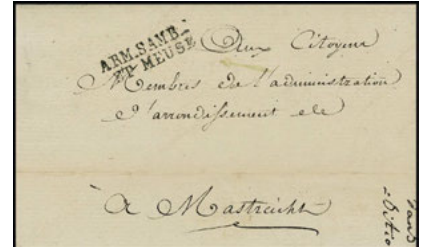 ARM. SAMB.
ET MEUSE
Aux Citoyens
Membres de l'administration
d'arrondissement de
à Mastreicht